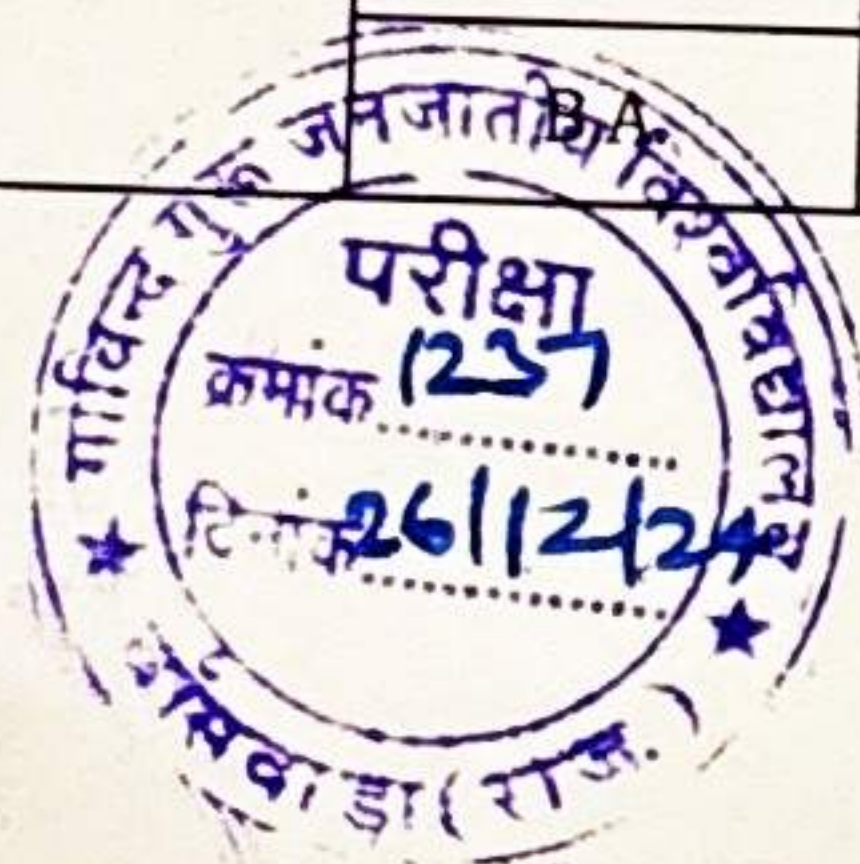 B.A.
गोविन्द गुरू जनजातीय विश्वविद्यालय
परीक्षा
क्रमांक 1237
दिनांक 26/12/24
बाँसवाडा (राज.)